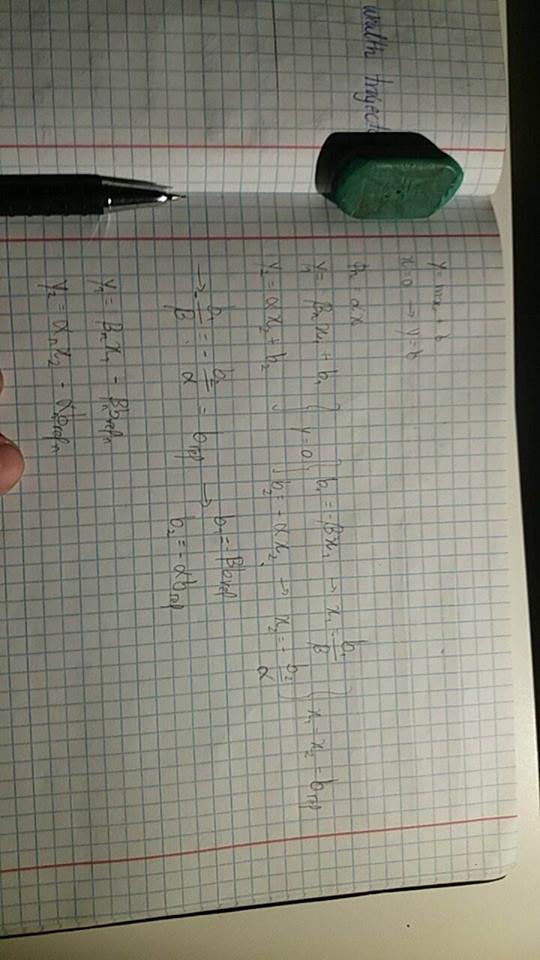 wealth traject
y = mx + b
x = 0 → y = b
ϕn = αx
y1 = βn x1 + b1 } y = 0 { b1 = -βx1 → x1 = -b1/β } x1 = x2 = bref
y2 = αx2 + b2 b2 = -αx2 → x2 = -b2/α
→ -b1/β = -b2/α = bref → b1 = -βbref
b2 = -αbref
y1 = βn x1 - βn brefn
y2 = αn x2 - αn brefn